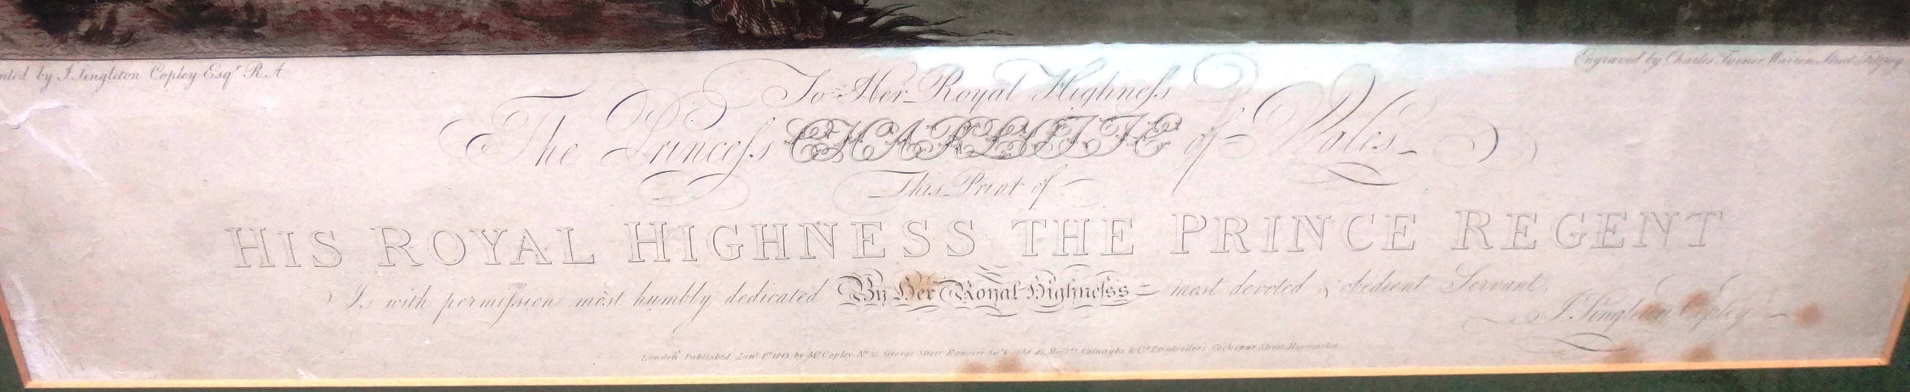 nted by J. Singleton Copley Esqr. R.A
Engraved by Charles Turner Warren Street Fitzroy
To Her Royal Highness
The Princess CHARLOTTE of Wales
This Print of
HIS ROYAL HIGHNESS THE PRINCE REGENT
Is with permission most humbly dedicated By Her Royal Highness most devoted & obedient Servant.
J. Singleton Copley
London Published Jany. 1st. 1813 by Mr. Copley No. 25 George Street Hanover Sqr. & sold at Messrs. Colnaghi & Co. Printsellers, Cockspur Street Haymarket